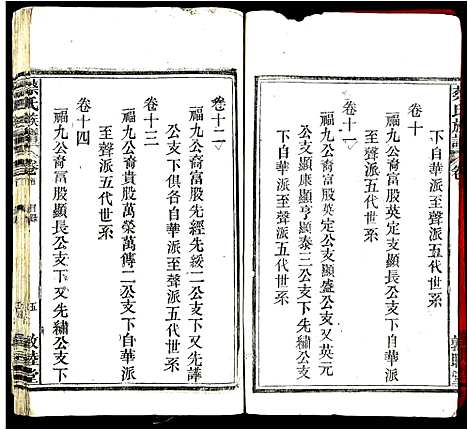 卷十
一福九公裔富股英定支顯長公支下自華派
至聲派五代世系
卷十一
一福九公裔富股英定支顯盛公支又英元
公支顯康顯亨顯泰三公支下自華派
至聲派五代世系
卷十二
一福九公裔富股先經先綏二公支下又先譁
公支下俱各自華派至聲派五代世系
卷十三
一福九公裔貴股萬榮萬傳二公支下自華派
至聲派五代世系
卷十四
一福九公裔富股顯長公支下又先繡公支下
氏族譜
卷
五
敦睦堂